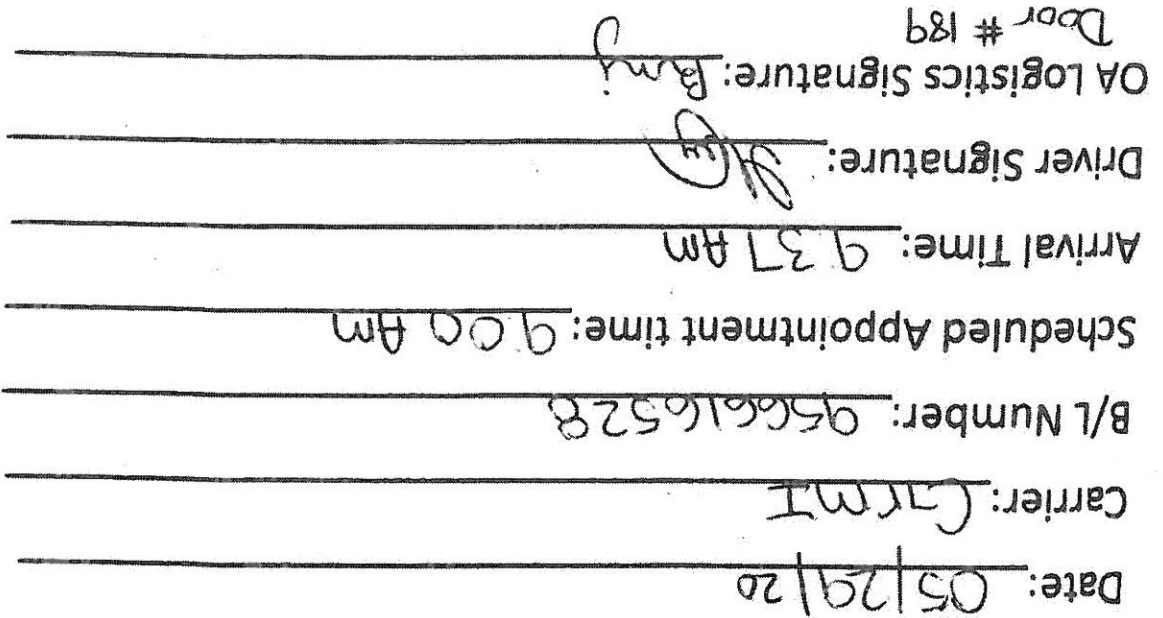 Date: 05/29/20
Carrier: GrmI
B/L Number: 956616528
Scheduled Appointment time: 9:00 Am
Arrival Time: 9:37 Am
Driver Signature:
OA Logistics Signature:
Door # 189